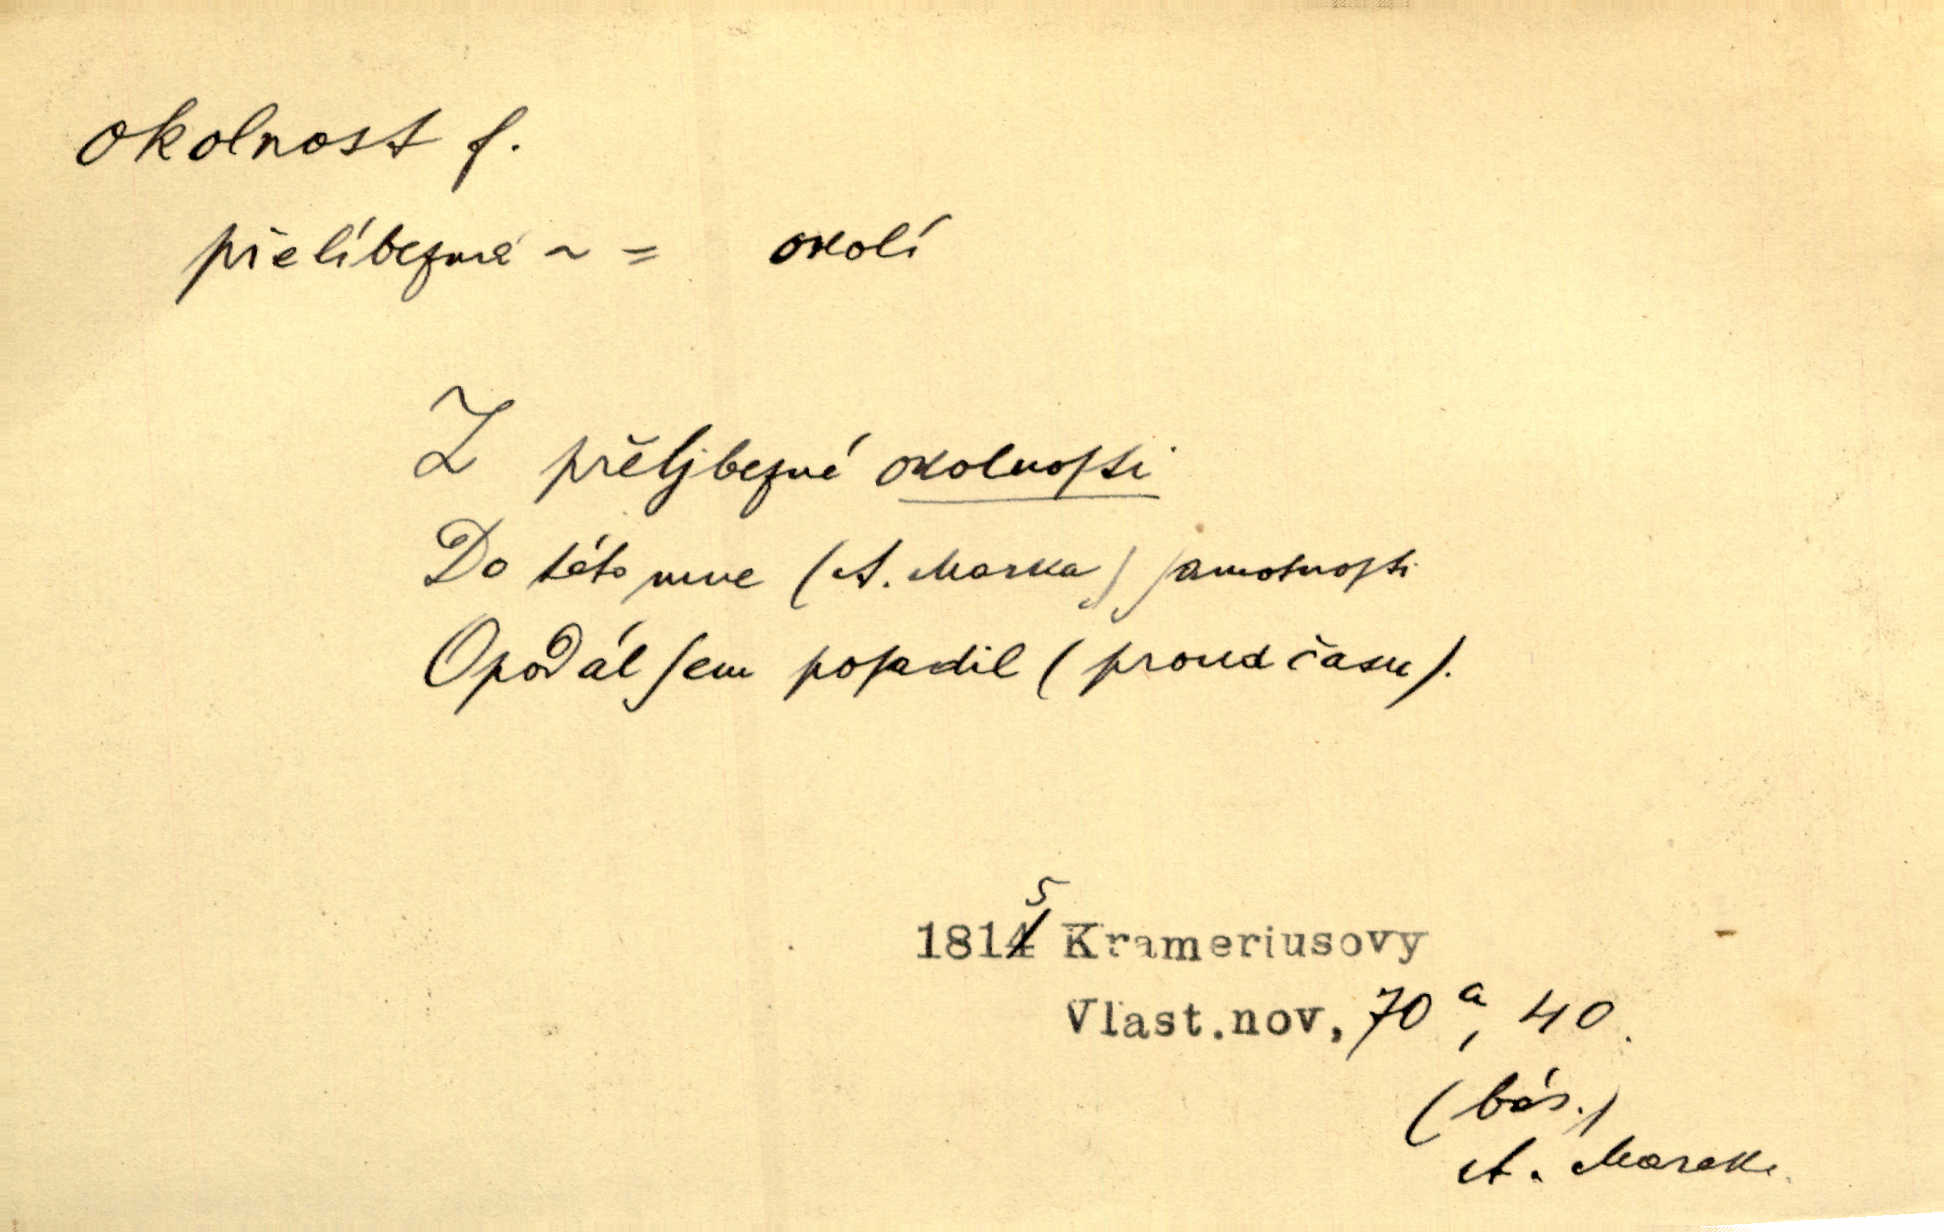 okolnost f.
přelíbezná ~ = okolí
Z přeljbezné okolnoſti
Do této mne (A. Marka) ſamotnoſti
Opodál ſem poſadil (proud času).
5
1814 Krameriusovy
Vlast.nov, 70 a, 40.
(bás.)
A. Marek.